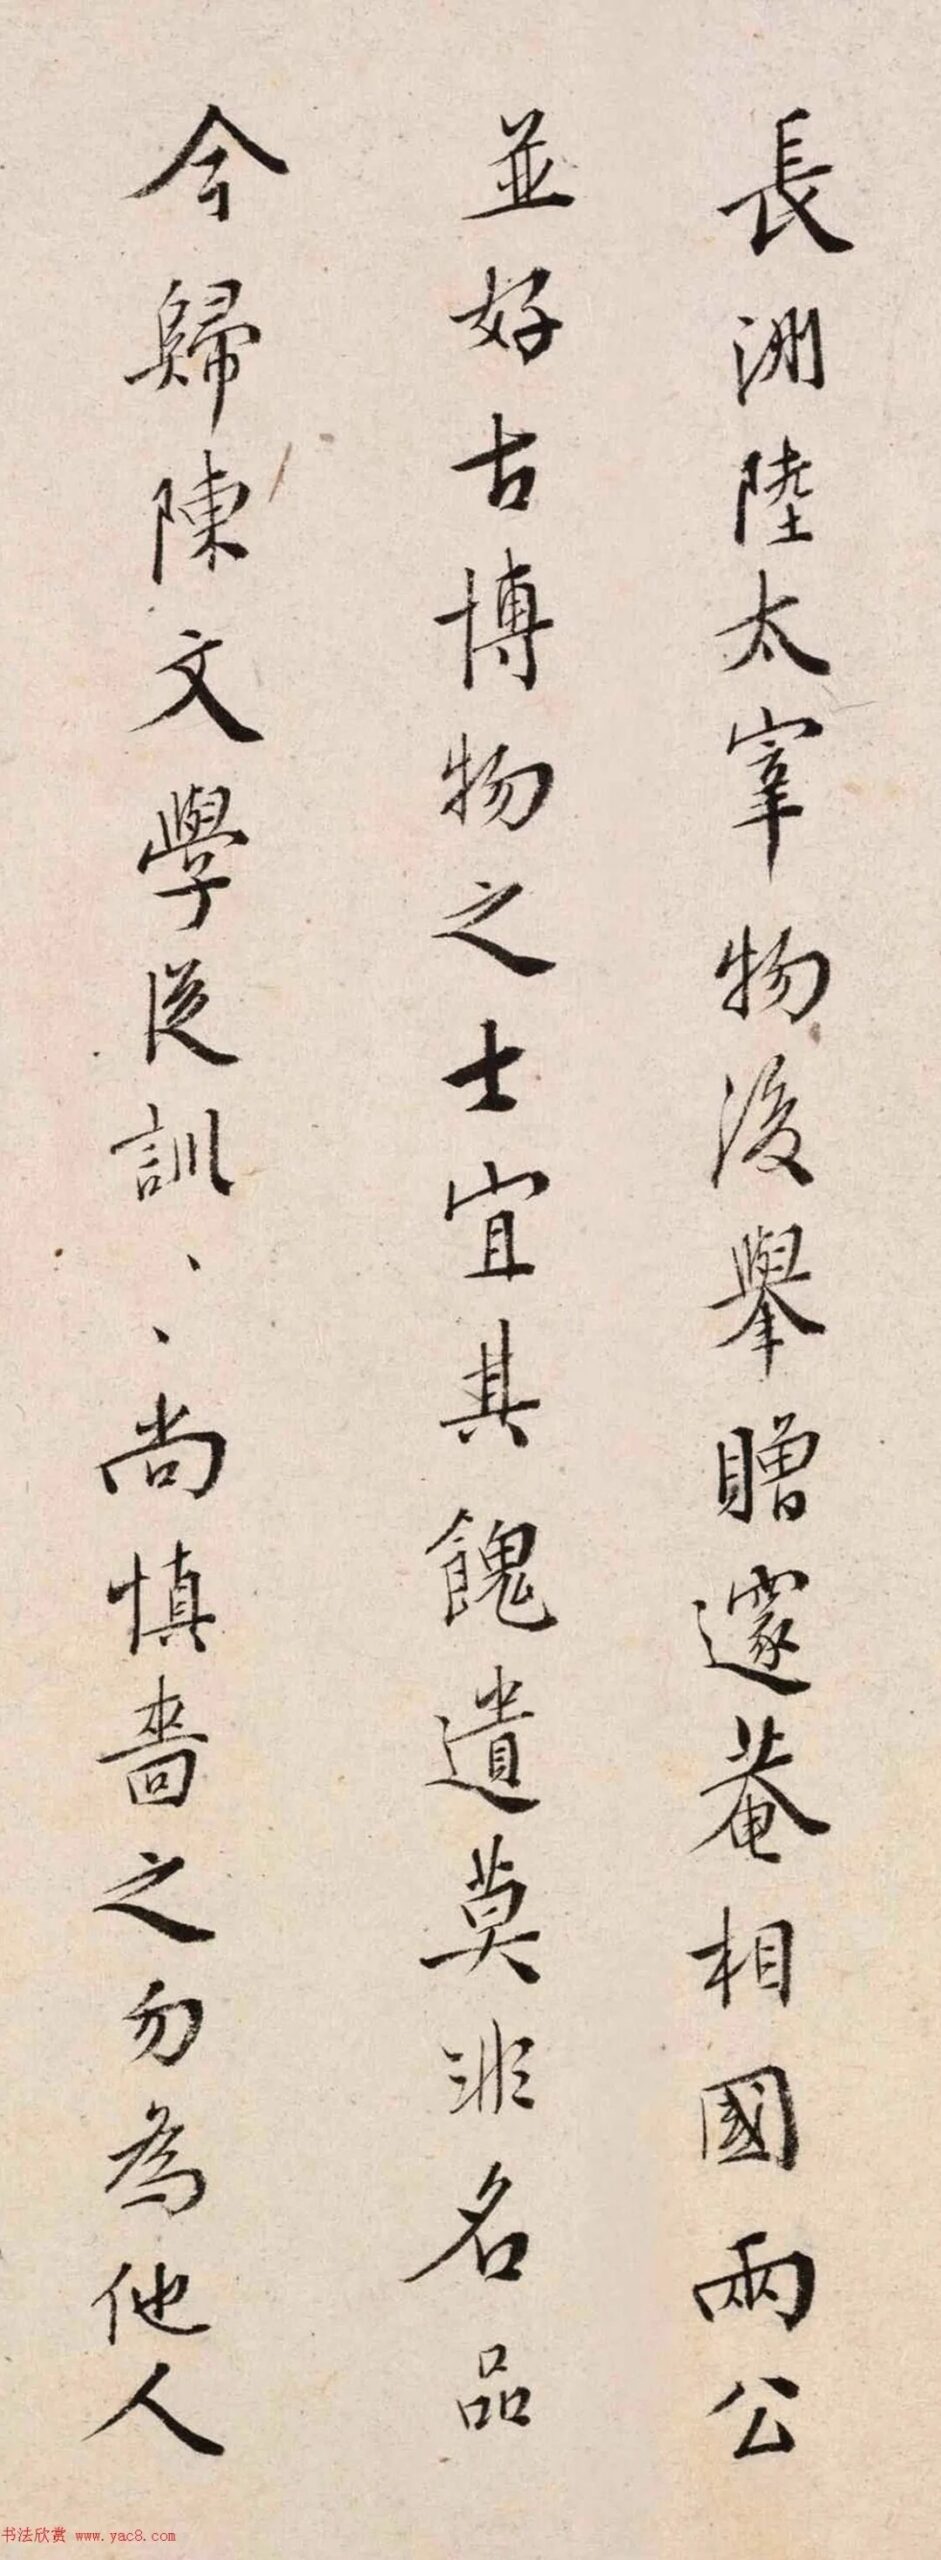 長洲陸太宰物後舉贈邃菴相國兩公
並好古博物之士宜其餽遺莫非名品
今歸陳文學従訓、、尚慎嗇之勿為他人
书法欣赏 www.yac8.com